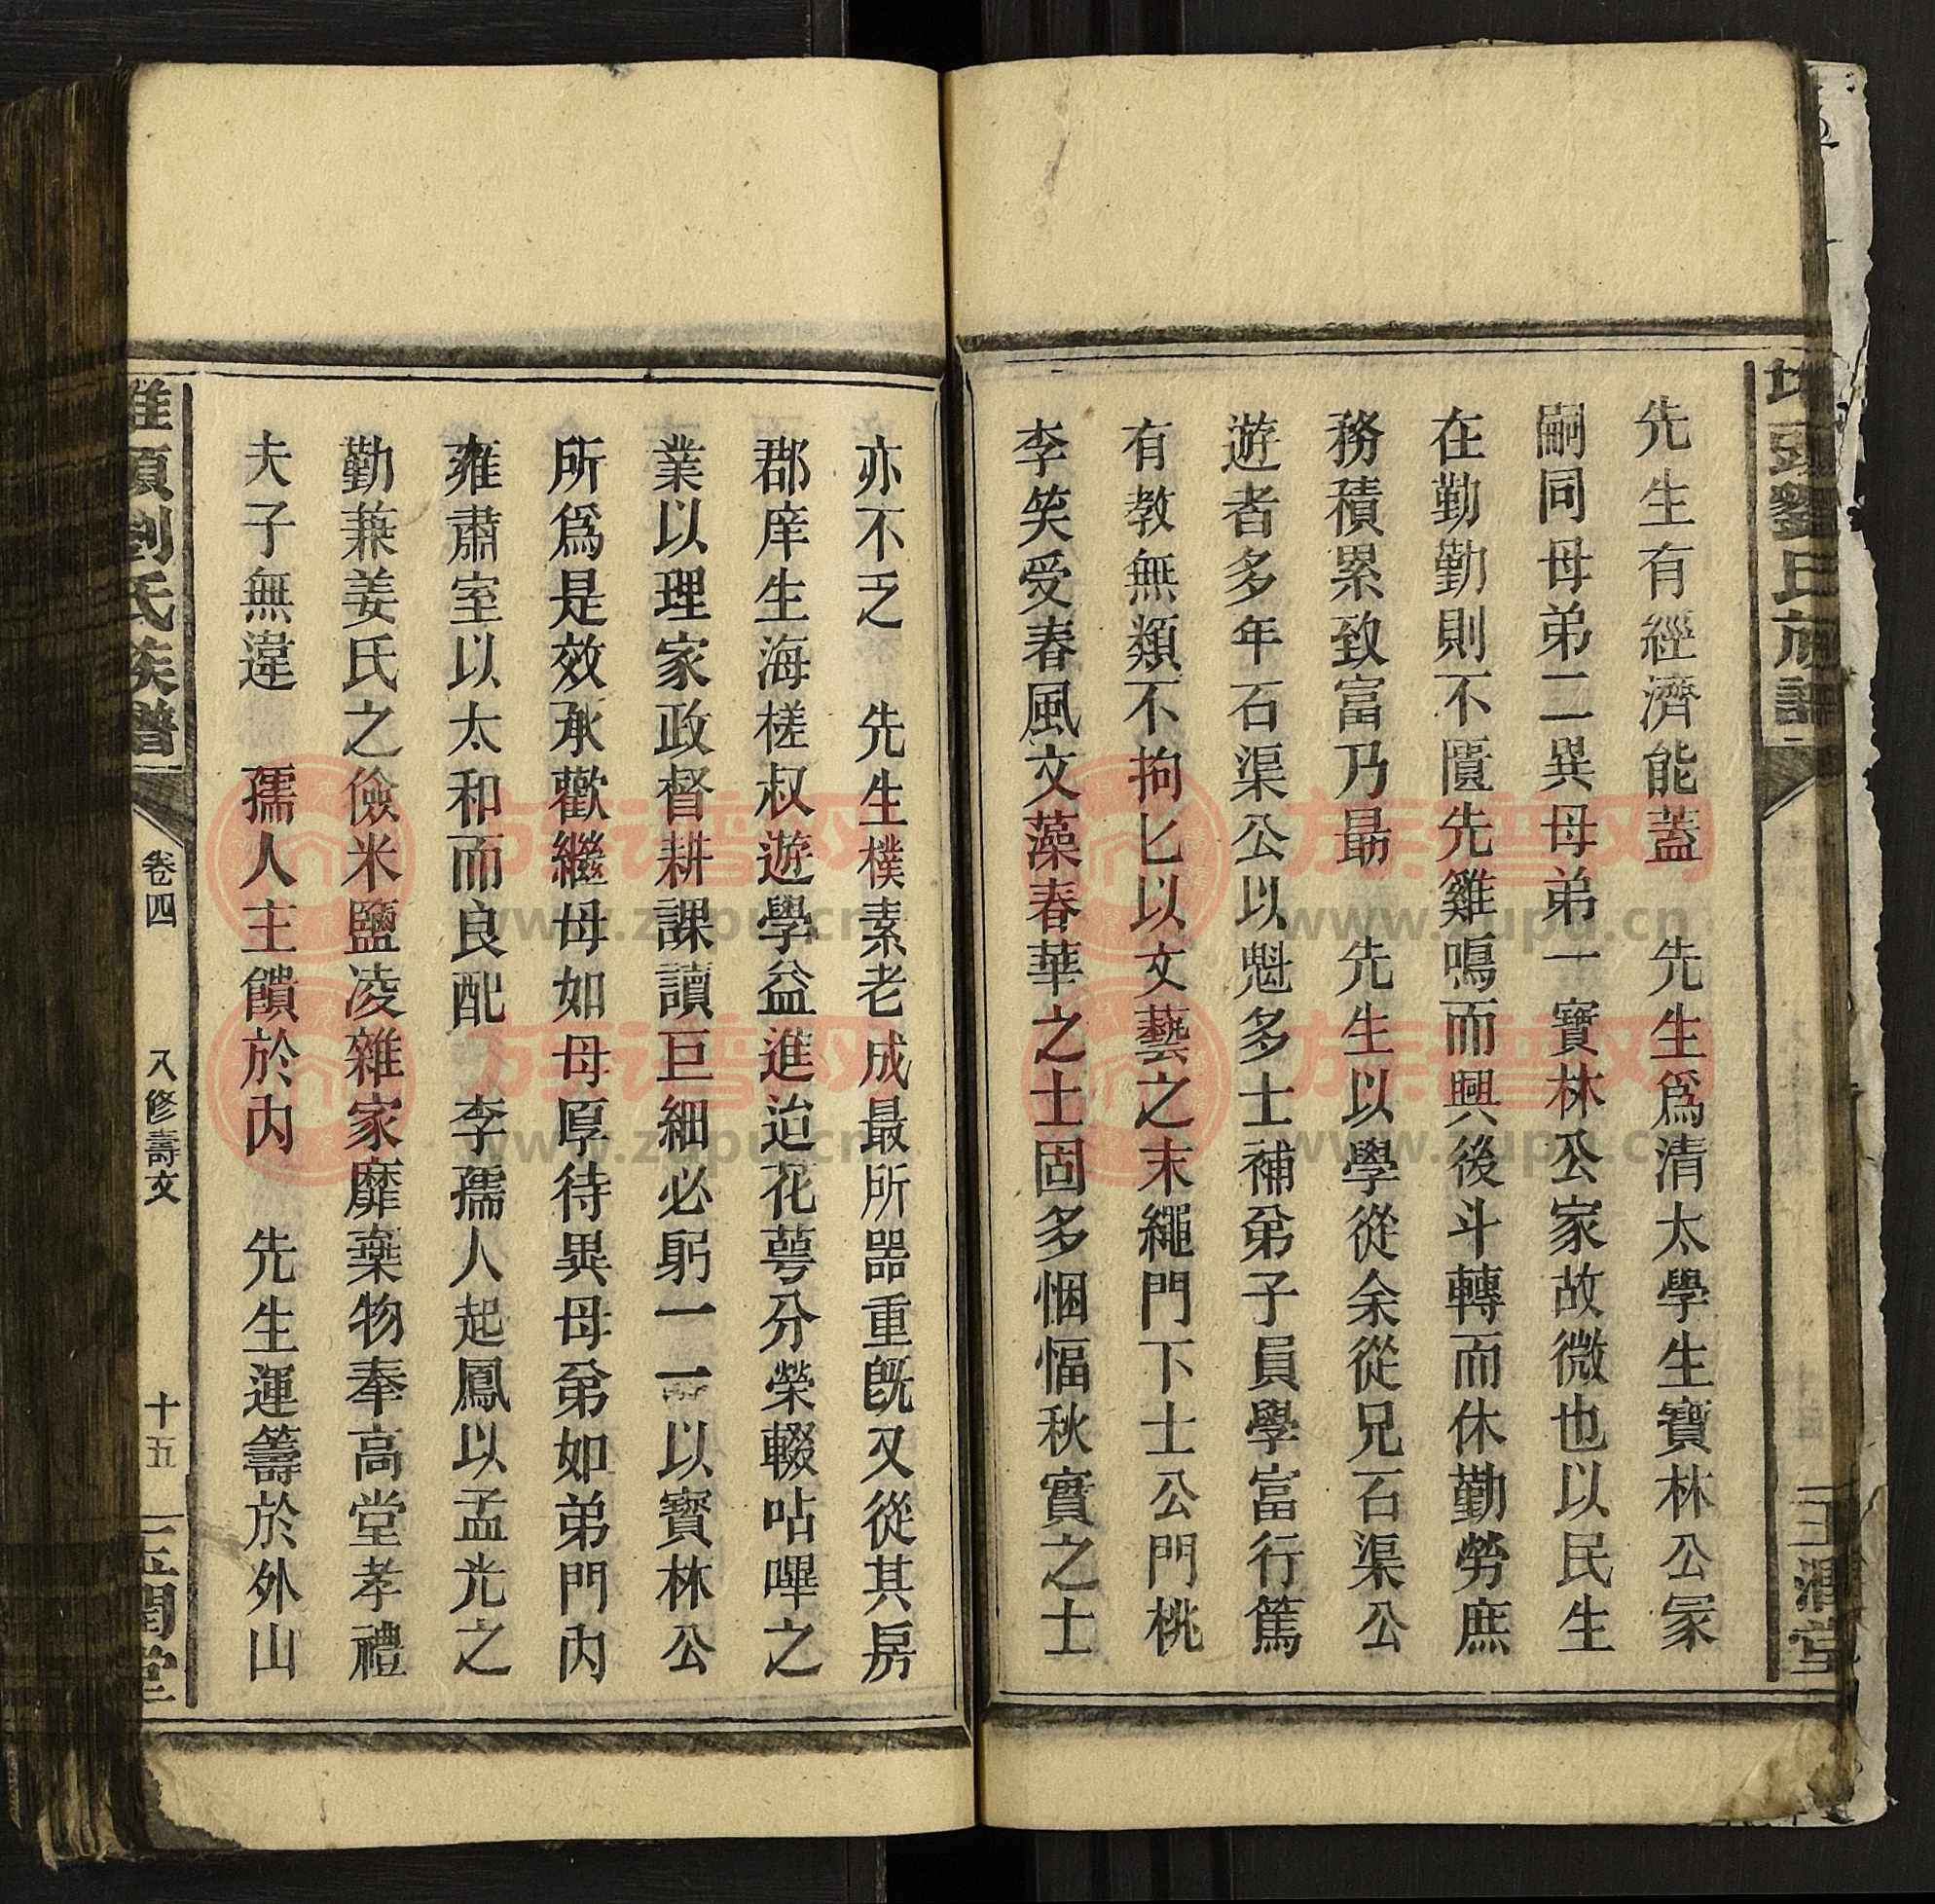 先生有經濟能蓋　先生爲清太學生寶林公冢
嗣同母弟二異母弟一寶林公家故微也以民生
在勤勤則不匱先雞鳴而興後斗轉而休勤勞庶
務積累致富乃最　先生以學從余從兄石渠公
遊者多年石渠公以魁多士補弟子員學富行篤
有教無類不拘匕以文藝之末繩門下士公門桃
李笑受春風文藻春華之士固多悃愊秋實之士
亦不乏　先生樸素老成最所器重旣又從其房
郡庠生海槎叔遊學益進迨花萼分榮輟呫嗶之
業以理家政督耕課讀巨細必躬一一以寶林公
所爲是效承歡繼母如母厚待異母弟如弟門內
雍肅室以太和而良配　李孺人起鳳以孟光之
勤兼姜氏之儉米鹽凌雜家靡棄物奉高堂孝禮
夫子無違　孺人主饋於內　先生運籌於外山
劉氏族譜
卷四
入修壽文
十五
玉潤堂
族谱网
www.zupu.cn
族谱网
www.zupu.cn
族谱网
www.zupu.cn
族谱网
www.zupu.cn